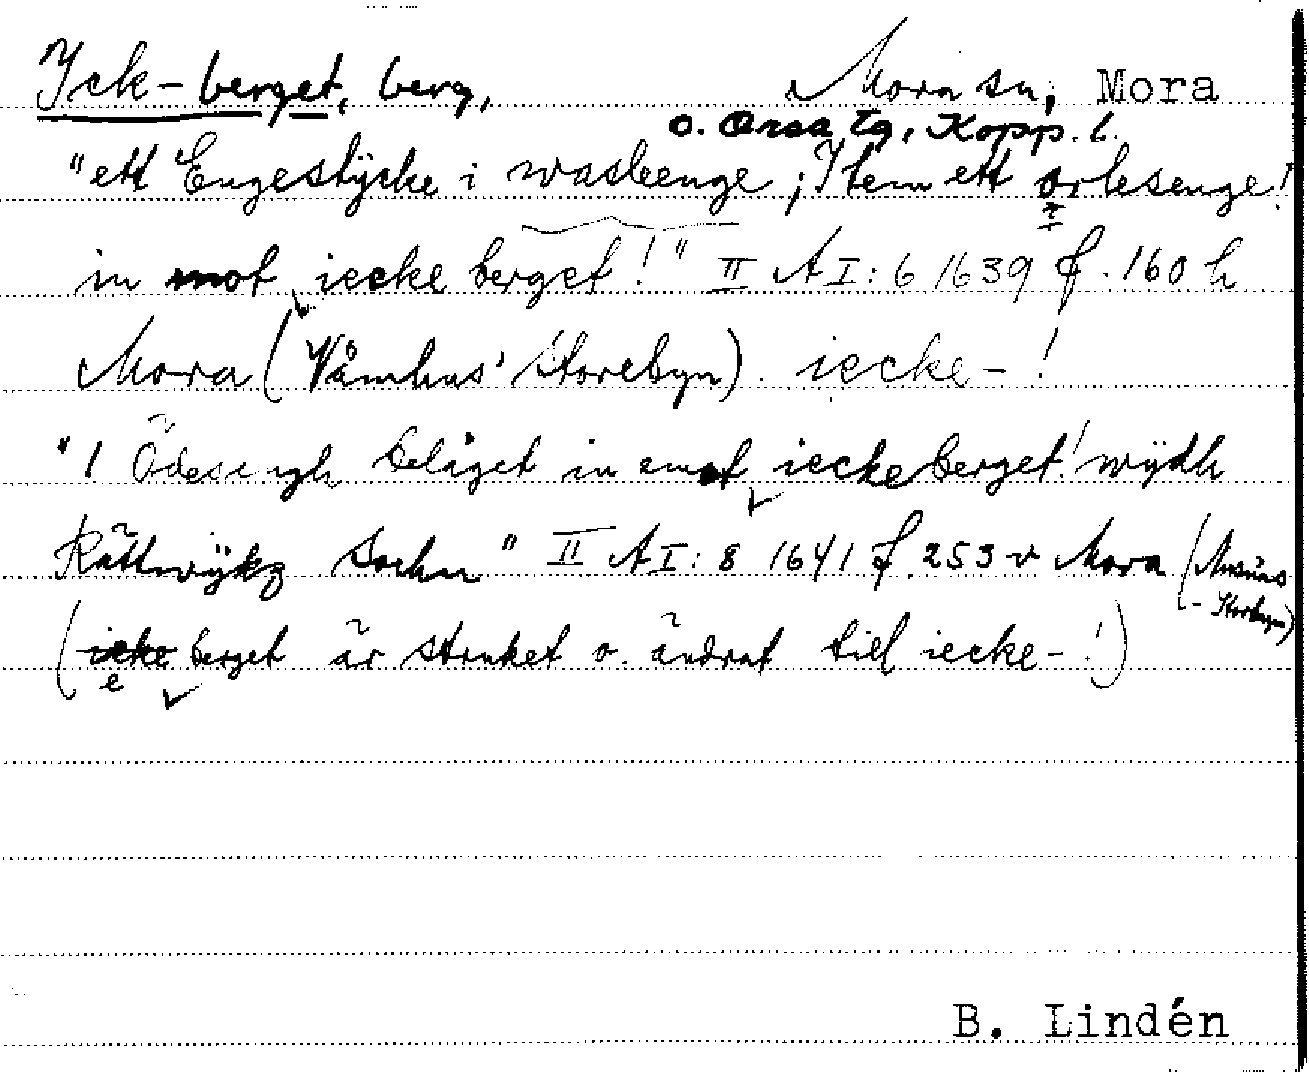 Ick-berget, berg, Mora sn; Mora
o. Orsa tg, Kopp. l.
"ett Engestÿcke i wasbenge; Item ett orlesenge!
in mot iecke berget!" II A I:6 1639 f. 160 h
Mora (Våmhus' Storebyn). iecke-!
"1 Ödesengh beläget in emot iecke berget! wÿdh
Rättwÿkz Sochn" II A I:8 1641 f. 253 v Mora
(icke berget är struket o. ändrat till iecke-!)
e
B. Lindén